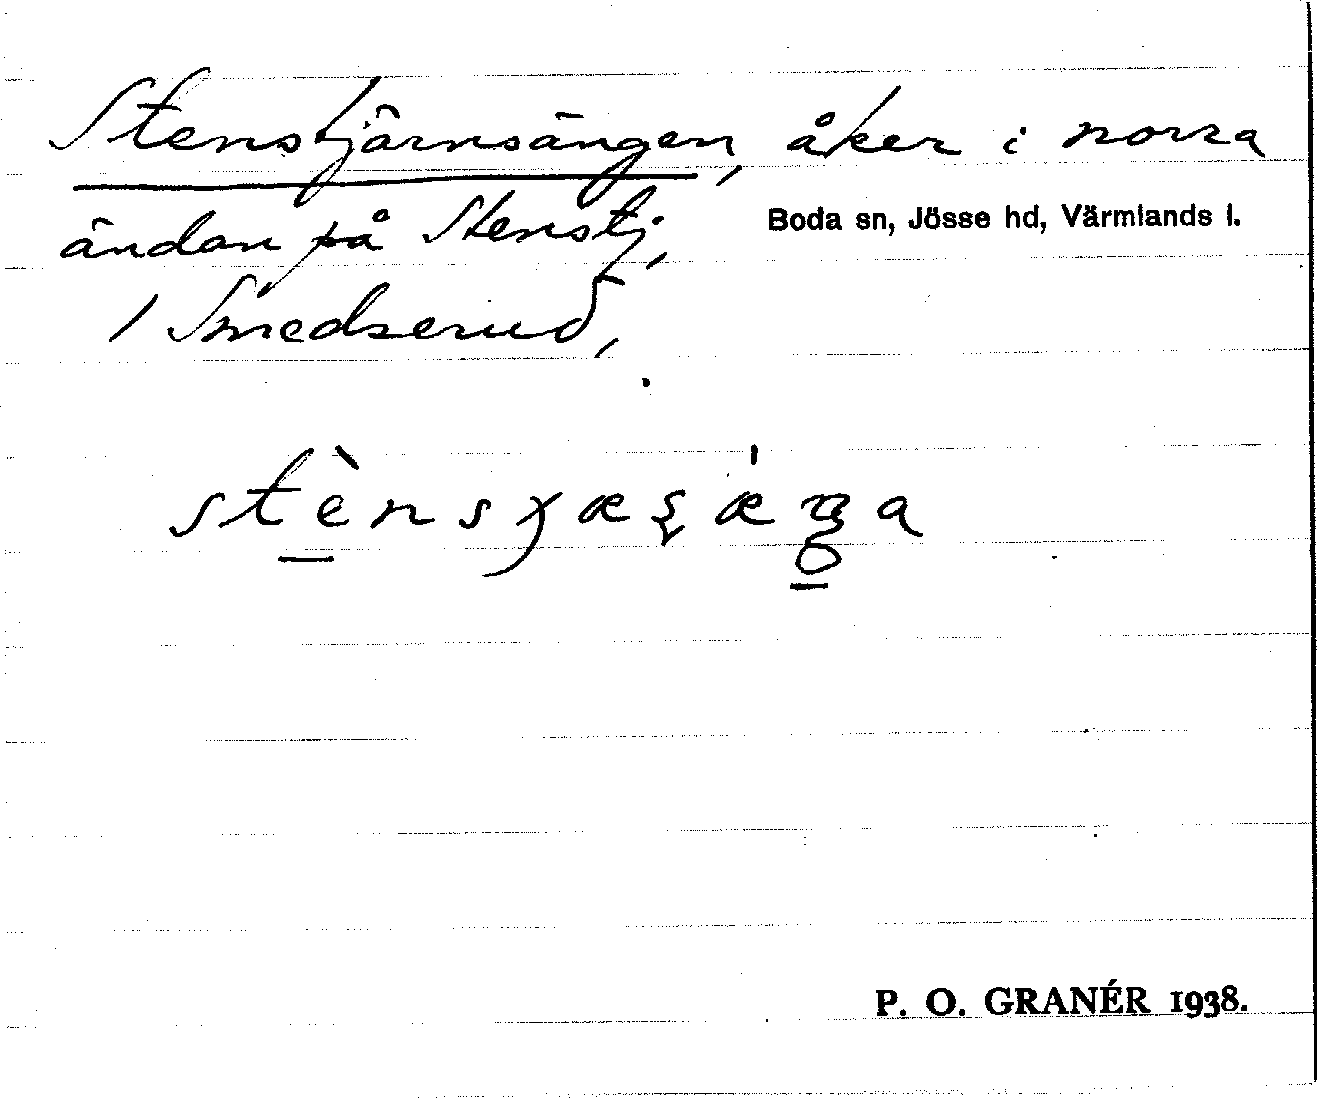 Stenstjärnsängen, åker i norra
ändan på Stenstj,
Boda sn, Jösse hd, Värmlands l.
1 Smedserud,
P. O. GRANÉR 1938.